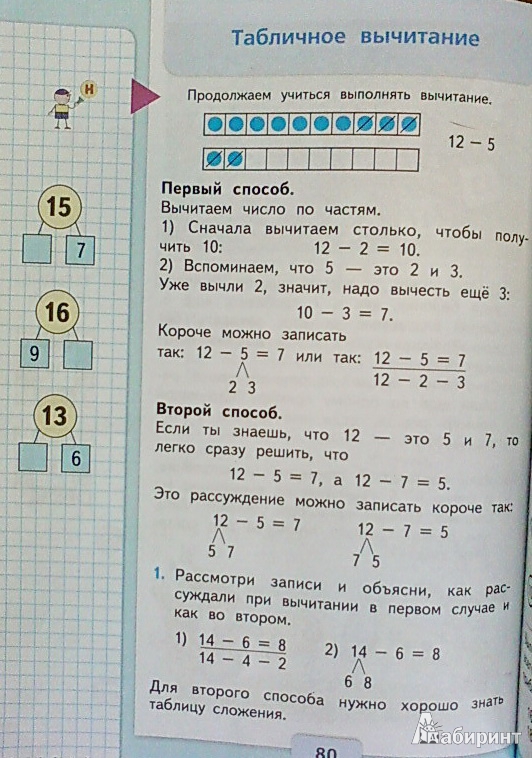 Табличное вычитание
Н
Продолжаем учиться выполнять вычитание.
12 − 5
15
7
16
9
13
6
Первый способ.
Вычитаем число по частям.
1) Сначала вычитаем столько, чтобы полу-
чить 10: 12 − 2 = 10.
2) Вспоминаем, что 5 — это 2 и 3.
Уже вычли 2, значит, надо вычесть ещё 3:
10 − 3 = 7.
Короче можно записать
так: 12 − 5 = 7 или так: 12 − 5 = 7
2 3 12 − 2 − 3
Второй способ.
Если ты знаешь, что 12 — это 5 и 7, то
легко сразу решить, что
12 − 5 = 7, а 12 − 7 = 5.
Это рассуждение можно записать короче так:
12 − 5 = 7 12 − 7 = 5
5 7 7 5
1. Рассмотри записи и объясни, как рас-
суждали при вычитании в первом случае и
как во втором.
1) 14 − 6 = 8 2) 14 − 6 = 8
14 − 4 − 2 6 8
Для второго способа нужно хорошо знать
таблицу сложения.
80
Лабиринт